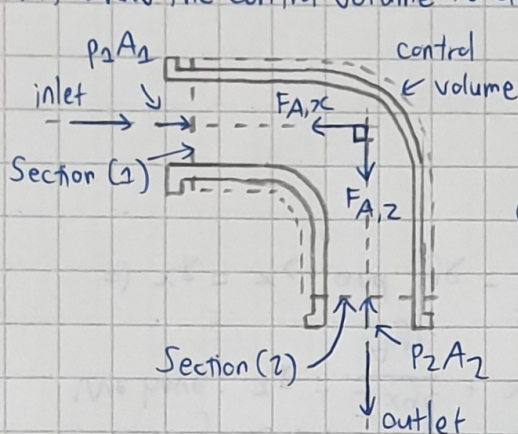 control
P1A1
volume
inlet
FA,x
Section (1)
FA,z
Section (2)
P2A2
outlet